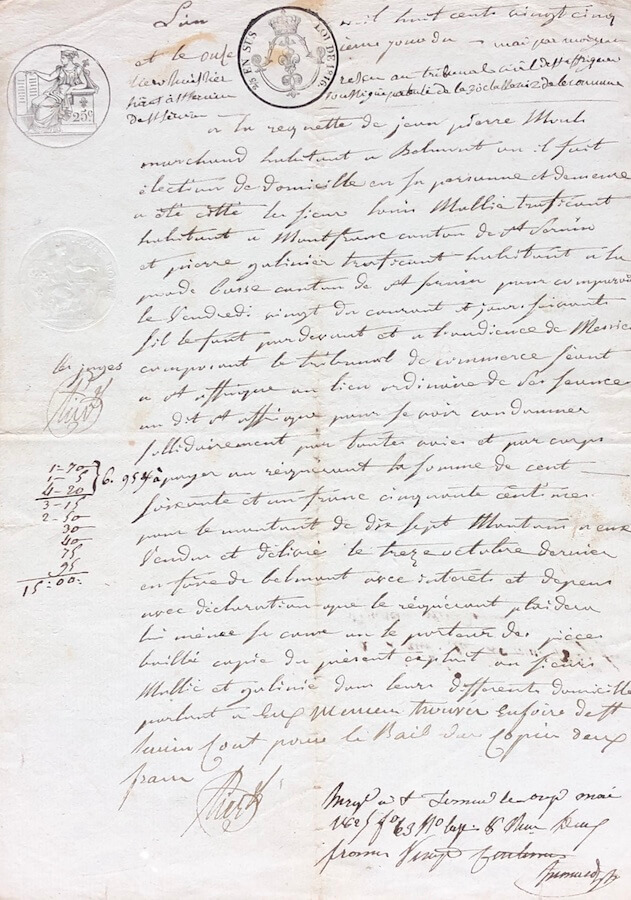 L'an mil huit cents vingt cinq
et le onzieme jour du mai par moi
25c
25 EN SUS
LOI DE 1816.
a la requette de jean pierre
marchand habitant a Belmont ou il fait
élection de domicille en sa personne et demeure
a été citté les sieur Louis Mallie traficant
habitant a Montfranc canton de St Sernin
et pierre galinier traficant habitant a la
basse canton de St sernin pour comparoir
le Vendredi vingt du courant et jours suivants
sil le faut pardevant et a l'audience de Messieurs
les juges
composant le tribunal de commerce séant
a St affrique au lieu ordinaire de ses seances
au dit St affrique pour se voir condamner
sollidairement par toutes voies et par corps
a payer au réquérant la somme de cent
soixante et un franc cinquante centimes
pour le montant de dix sept Moutons a eux
Vendus et délivrés le treze octobre dernier
en foire de belmont avec interets et depens
avec déclaration que le réquérant plaidera
lui même sa cause ou le porteur des pièces
baillé copie du présent exploit au sieurs
Mallie et galinié dans leurs differents domicille
parlant a Eux Memeu trouver en foire de St
sernin Cout pour le Bail des Copies deux
franc
1-70
1-5
4-20
6.95
3-15
2-50
30
40
75
95
15:00: